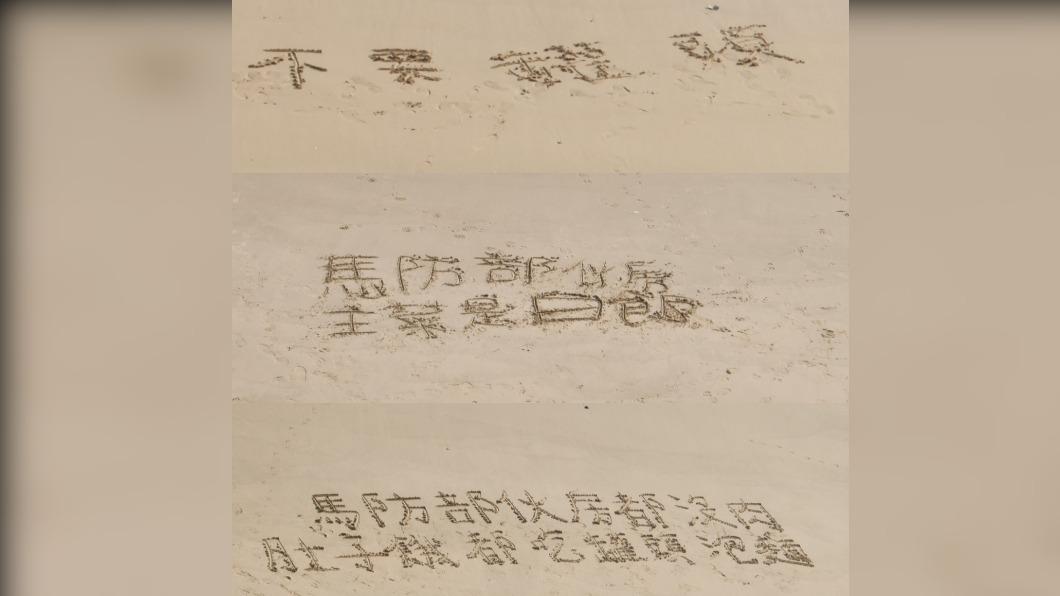 不要
馬防部伙房
主菜是白飯
馬防部伙房都沒肉
肚子餓都吃罐頭泡麵